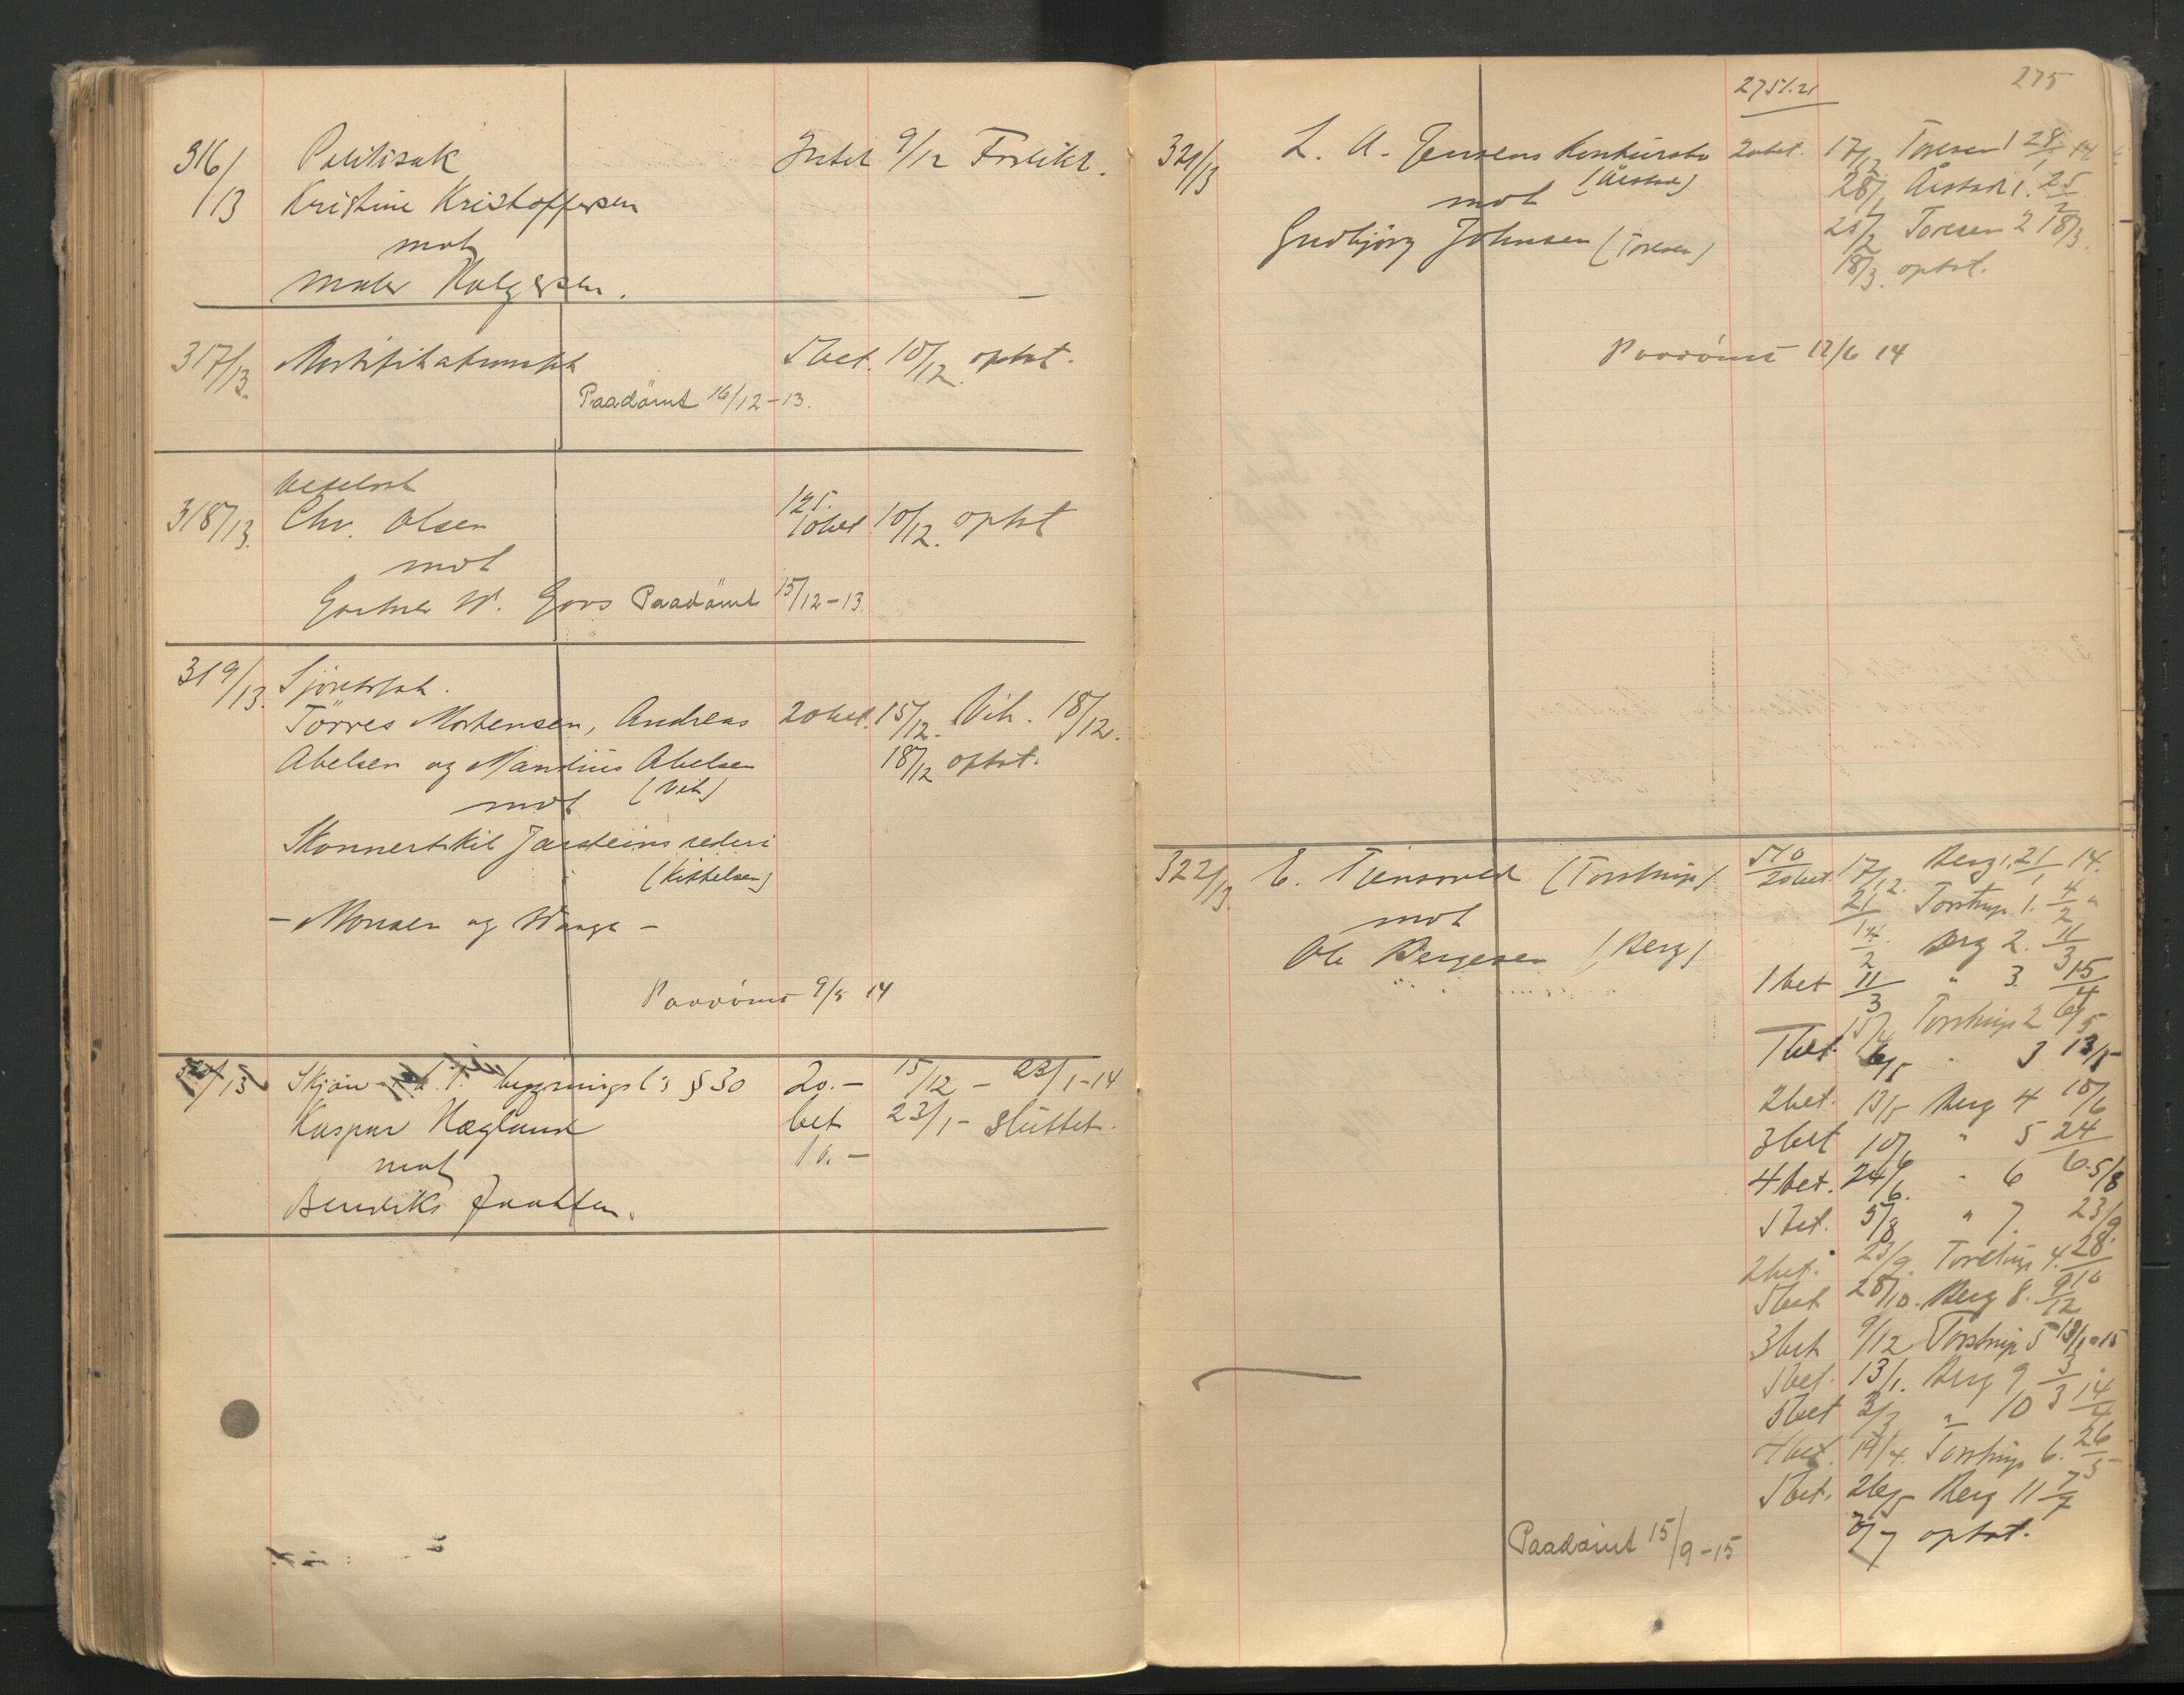 316/13 Politisak Intet 9/12 Forlikt.
Kristine Kristoffersen
mot
maler Holgersen.
317/13. Mortifikationssak 5 bet. 10/12. optat.
Paadömt 16/12-13.
Vekselsak
318/13. Chr. Olsen 10 bet 10/12. optat
mot
Gartner W. Goos Paadömt 15/12-13.
319/13. Sjöretssak.
Törres Mortensen, Andreas 20 bet. 15/12. Vik. 18/12.
Abelsen og Mandius Abelsen 18/12 optat.
(Vik)
mot
Skonnertskib Jarsteins rederi
(Kittelsen)
- Monsen og Waage -
Paadömt 9/5 14
320/13 Skjön bygningsl's § 30 20.- 15/12 - 23/1-14
Kaspar Hægland bet 23/1- sluttet.
mot 10.-
Bendiks
275
275 1.21
321/13 L. A. Jensens Konkursbo 20 bet. 17/12 Toresen 1 28/1 14.
(Årstad) 28/1 Årstad 1. 25/2
mot
Gudbjörg Johnsen (Toresen) 25/2 Toresen 2 18/3.
18/3. optat.
Paadömt 12/6 14
322/13. E. Tjensvold (Torstrup) 20 bet. 17/12. Berg 1. 21/1 14.
21/1 Torstrup 1. 4/2 "
mot
Ole Bergesen (Berg) 4/2 Berg 2. 11/3
1 bet 11/3 " 3. 15/4
15/4 Torstrup 2 6/5
1 bet. 6/5 " 3 13/5
2 bet. 13/5 Berg 4 10/6
3 bet 10/6 " 5 24/6
4 bet. 24/6. " 6 5/8
5 bet. 5/8 " 7. 23/9.
2 bet. 23/9. Torstrup 4. 28/10
5 bet 28/10. Berg 8. 9/12
3 bet 9/12 Torstrup 5 13/1-15
5 bet. 13/1. Berg 9 3/3
5 bet 3/3 " 10 14/4
4 bet. 14/4. Torstrup 6. 26/5
5 bet. 26/5 Berg 11 7/7
Paadömt 15/9-15 7/7 optat.